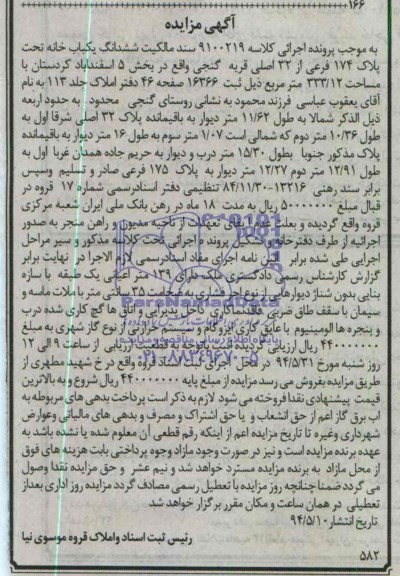 ۱۶۶
آگهی مزایده
به موجب پرونده اجرائی کلاسه ۹۱۰۰۲۱۹ سند مالکیت ششدانگ یکباب خانه تحت
پلاک ۱۷۴ فرعی از ۳۲ اصلی قریه گنجی واقع در بخش ۵ اسفنداباد کردستان با
مساحت ۳۳۳/۱۲ متر مربع ذیل ثبت ۱۶۳۶۶ صفحه ۴۶ دفتر املاک جلد ۱۱۳ به نام
آقای یعقوب عباسی فرزند محمود به نشانی روستای گنجی محدود به حدود اربعه
ذیل الذکر شمالا به طول ۱۱/۶۲ متر دیوار به باقیمانده پلاک ۳۲ اصلی شرقا اول به
طول ۱۰/۳۶ متر دوم که شمالی است ۱/۰۷ متر سوم به طول ۱۶ متر دیوار به باقیمانده
پلاک مذکور جنوبا بطول ۱۵/۳۰ متر درب و دیوار به حریم جاده همدان غربا اول به
طول ۱۲/۹۱ متر دوم ۱۲/۲۷ متر دیوار به پلاک ۱۷۵ فرعی صادر و تسلیم وسپس
برابر سند رهنی ۱۳۲۱۶-۸۴/۱۱/۳۰ تنظیمی دفتر اسنادرسمی شماره ۱۷ قروه در
قبال مبلغ ۵۰۰۰۰۰۰۰ ریال به مدت ۱۸ ماه در رهن بانک ملی ایران شعبه مرکزی
قروه واقع گردیده و بعلت عدم ایفای تعهدات از ناحیه مدیون و راهن منجر به صدور
اجرائیه از طرف دفترخانه و تشکیل پرونده اجرائی تحت کلاسه مذکور و سیر مراحل
اجرایی طی شده برابر آئین نامه اجرای مفاد اسنادرسمی لازم الاجرا در نهایت برابر
گزارش کارشناس رسمی دادگستری ملک دارای ۱۳۹ متر اعیانی یک طبقه با سازه
بنایی بدون شناژ دیوارهایی از نوع اجر فشاری به ضخامت ۳۵ سانتی متر با ملات ماسه و
سیمان با سقف طاق ضربی فاقد نماکاری داخل پذیرایی و اتاق ها گچ کاری شده درب
و پنجره ها الومینیوم با عایق کاری ایزوگام و سیستم حرارتی از نوع گاز شهری به مبلغ
۴۴۰۰۰۰۰۰۰ ریال ارزیابی گردیده است باتوجه به قطعیت ارزیابی از ساعت ۹ الی ۱۲
روز شنبه مورخ ۹۴/۵/۳۱ در محل اجرای ثبت اسناد قروه واقع در خ شهید مطهری از
طریق مزایده بفروش می رسد مزایده از مبلغ پایه ۴۴۰۰۰۰۰۰۰ ریال شروع و به بالاترین
قیمت پیشنهادی نقدا فروخته می شود لازم به ذکر است پرداخت بدهی های مربوطه به
اب برق گاز اعم از حق انشعاب و یا حق اشتراک و مصرف و بدهی های مالیاتی وعوارض
شهرداری وغیره تا تاریخ مزایده اعم از اینکه رقم قطعی آن معلوم شده یا نشده باشد به
عهده برنده مزایده است و نیز در صورت وجود مازاد وجوه پرداختی بابت هزینه های فوق
از محل مازاد به برنده مزایده مسترد خواهد شد و نیم عشر و حق مزایده نقدا وصول
می گردد ضمنا چنانچه روز مزایده با تعطیل رسمی مصادف گردد مزایده روز اداری بعداز
تعطیلی در همان ساعت و مکان مقرر برگزار خواهد شد
تاریخ انتشار: ۹۴/۵/۱۰
رئیس ثبت اسناد واملاک قروه موسوی نیا
۵۸۲
ParsNamadData
پایگاه اطلاع رسانی مناقصه و مزایده
۰۲۱-۸۸۳۴۹۶۷۰-۵